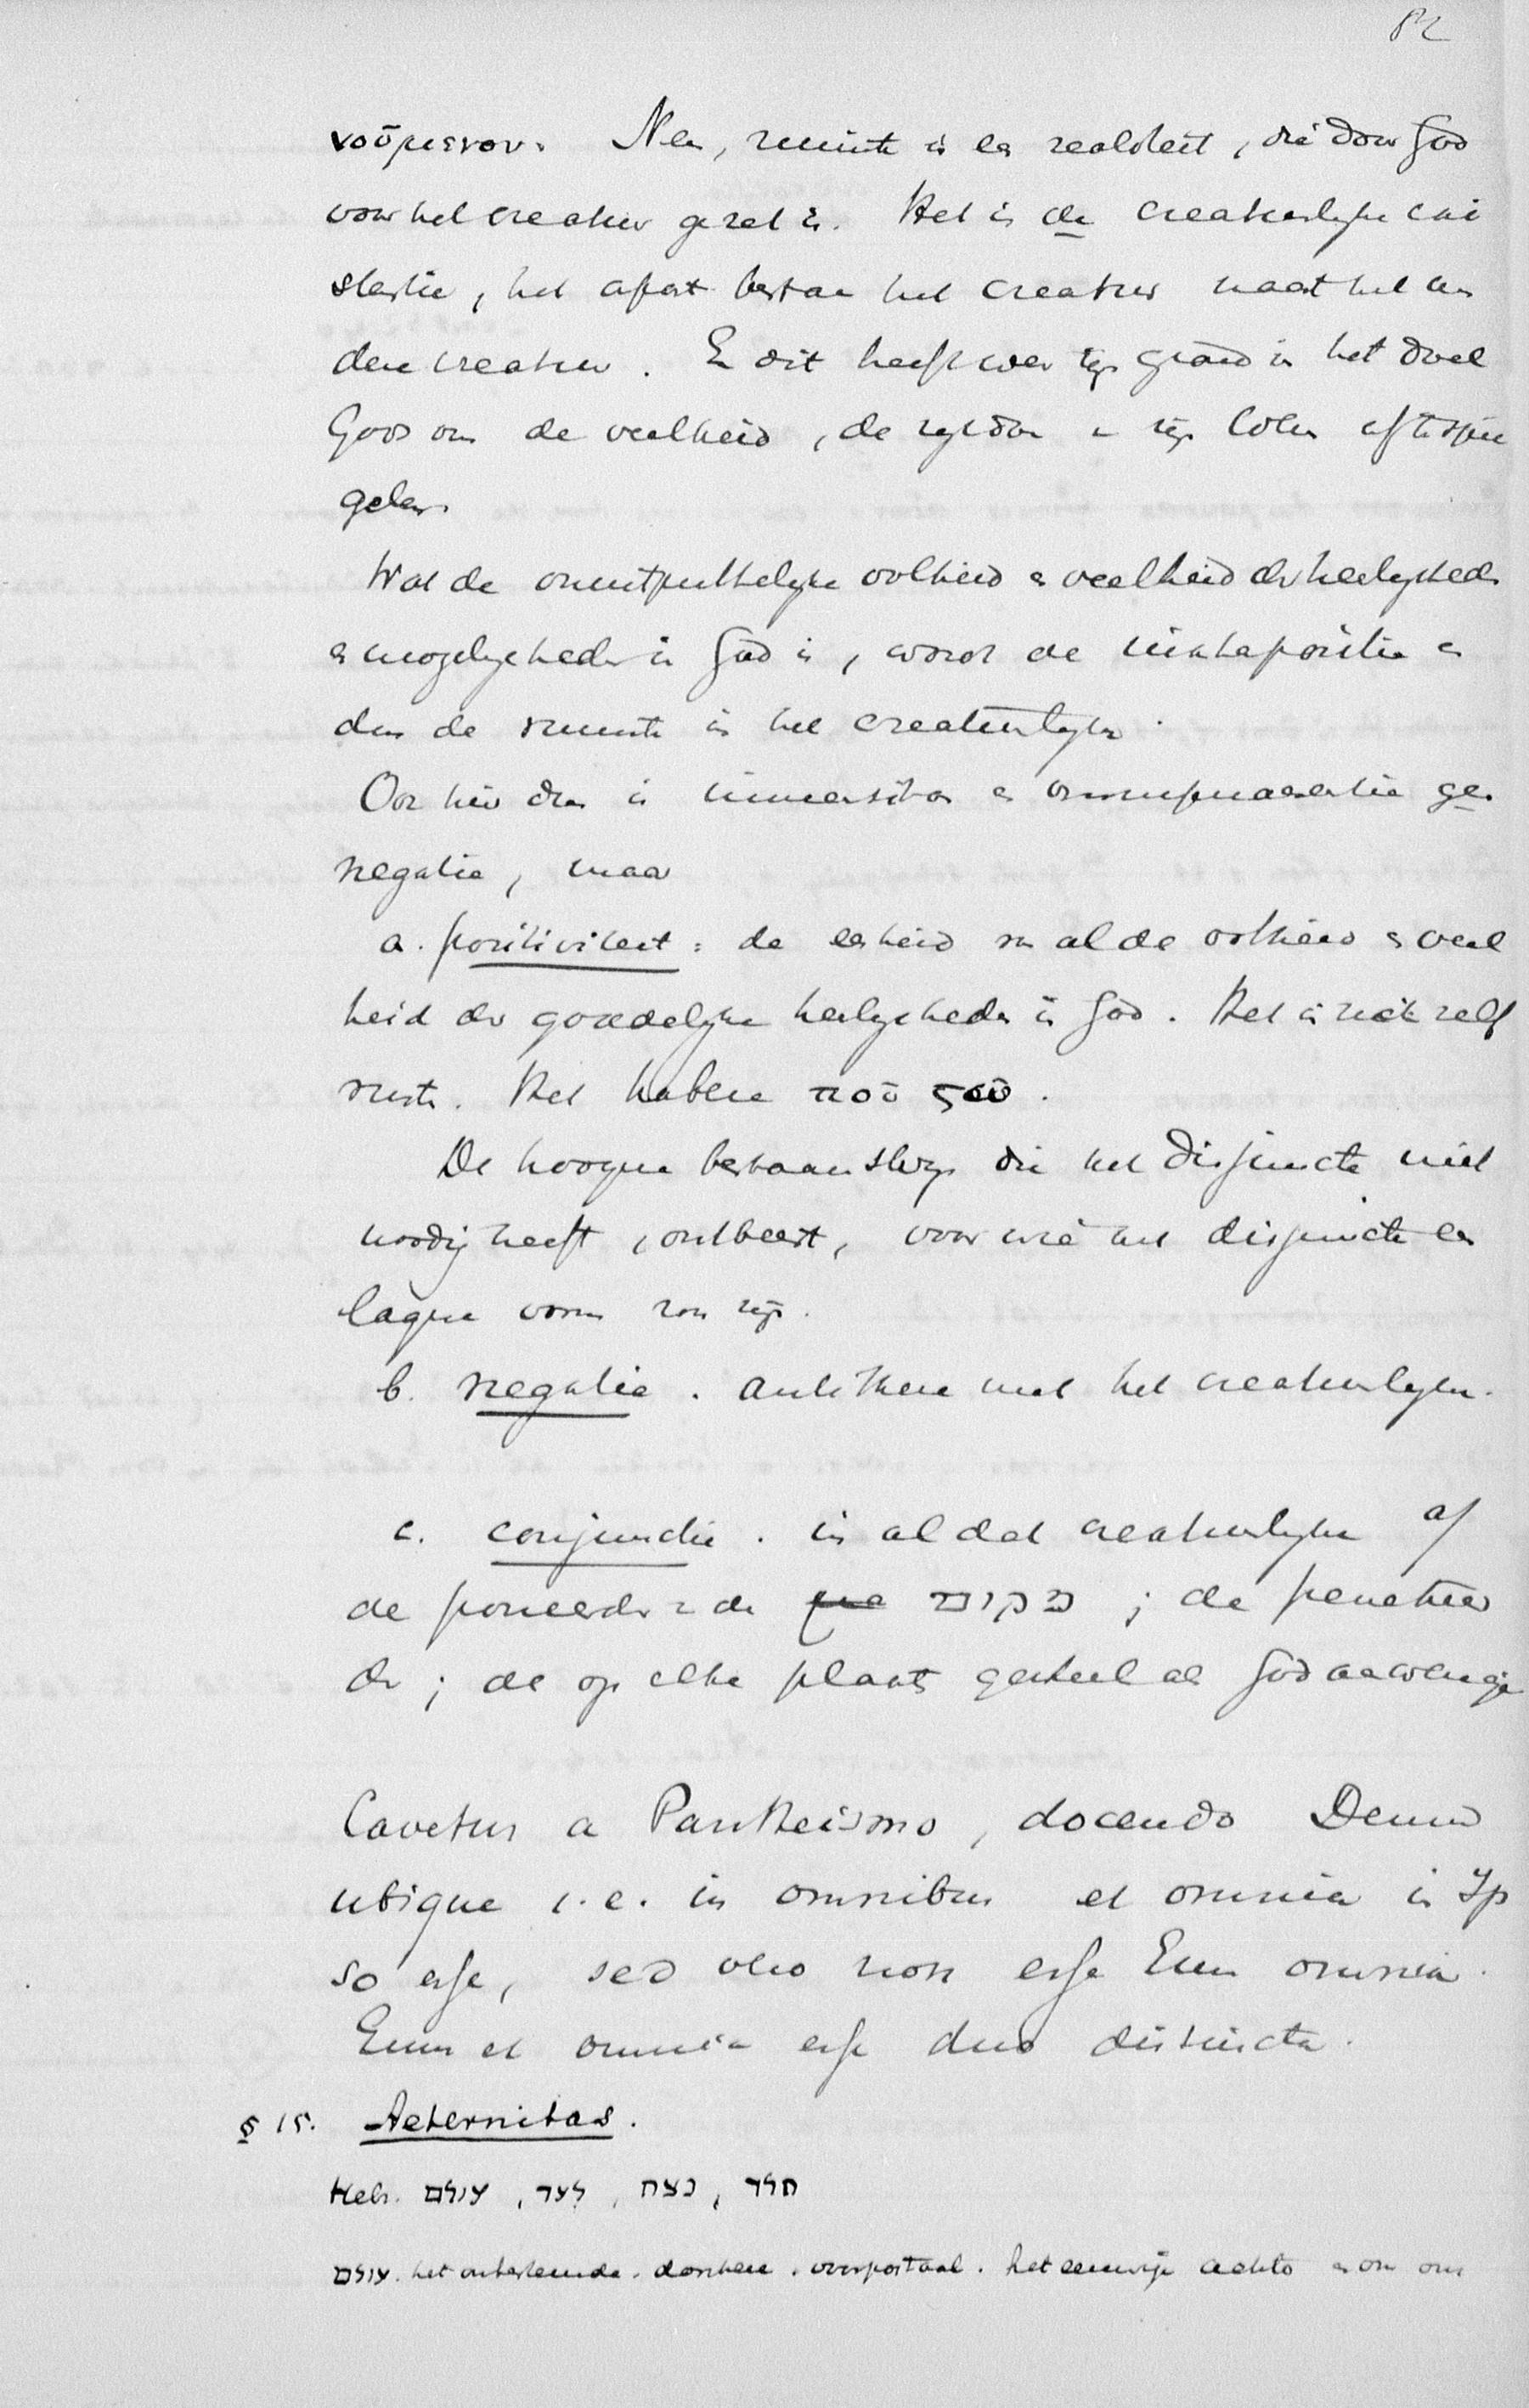 82
νοούμενον. Neen, ruimte is een realiteit, die door God
voor het creatuur gezet is. Het is de creatuurlijke exi
stentie, het apart bestaan het creatuur naast het an
dere creatuur. En dit heeft weer zijn grond in het doel
Gods om de veelheid, de rijkdom in zijn leven af te spie
gelen.
Wat de onuitputtelijke volheid en veelheid der heerlijkheden
en mogelijkheden in God is, wordt de iuxtapositie en
dus de ruimte in het creatuurlijke.
Ook hier dus is immensitas en omnipraesentie geen
negatie, maar
a. positiviteit: de eenheid van al de volheid en veel
heid der goddelijke heerlijkheden in God. Het in zich zelf
rusten. Het habere ποῦ στῶ.
De hoogere bestaanswijze die het disjuncte niet
noodig heeft, ontbeert, voor wie het disjuncte een
lagere vorm zou zijn.
b. negatie. Antithese met het creatuurlijke.
c. conjunctie. in al dat creatuurlijke af
de poneerder de מקום ; de penetree
der; de op elke plaats geheel als God aanwezige
Cavetur a Pantheismo, docendo Deum
ubique i.e. in omnibus et omnia in Ip
so esse, sed vero non esse Eum omnia.
Eum et omnia esse duo distincta.
§ 15. Aeternitas.
Hebr. עולם, לעד, נצח, חלד
עולם. het onbestemde. donkere. voorportaal. het eeuwige achter en om ons